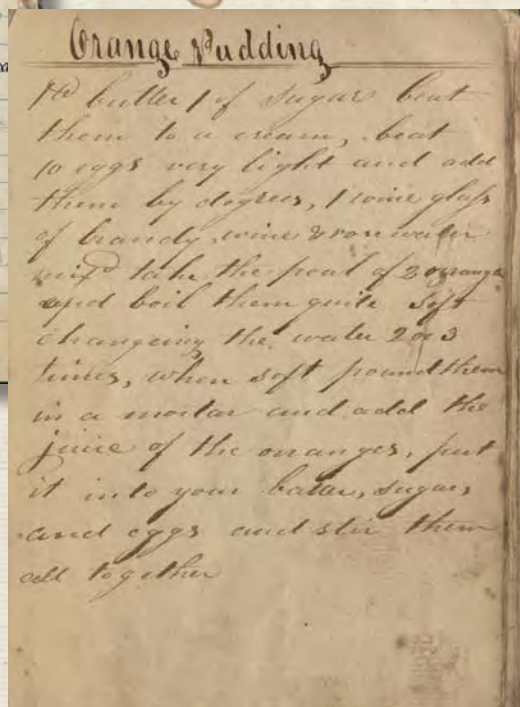 Orange Pudding
1 lb butter 1 of sugar beat
them to a cream, beat
10 eggs very light and add
them by degrees, 1 wine glass
of brandy, wine & rose water
mixd take the peal of 2 oranges
and boil them quite soft
changeing the water 2 or 3
times, when soft pound them
in a mortar and add the
juice of the oranges, put
it into your batar, sugar,
and eggs and stir them
all together